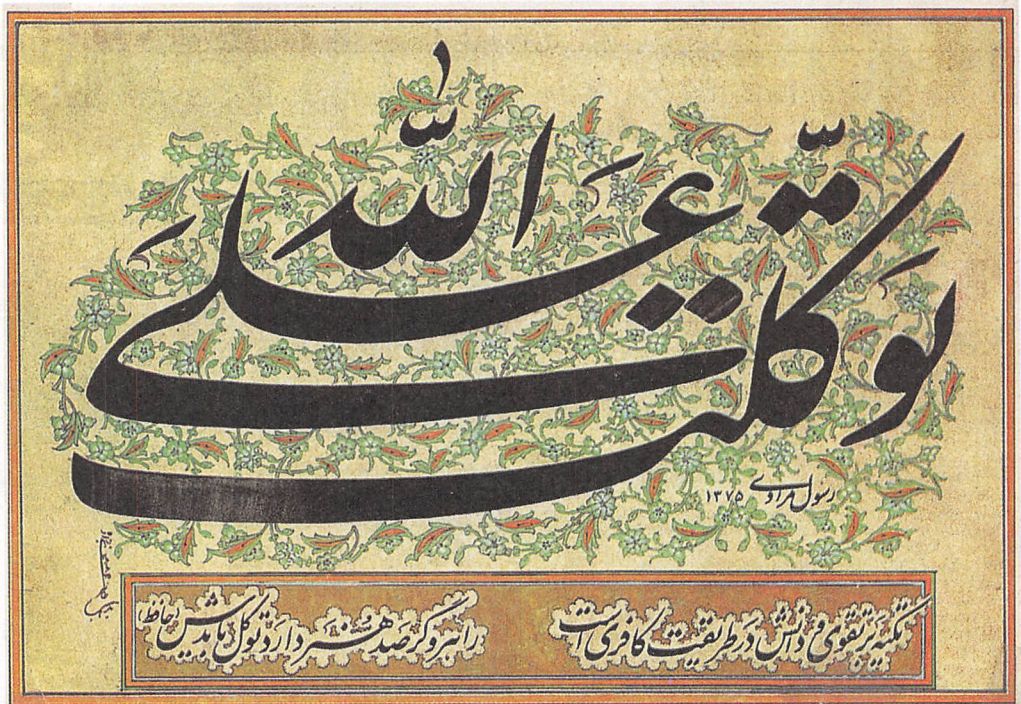 توکّلت علی اللّٰه
رسول مرادی ۱۳۷۵
تکیه بر تقوی و دانش در طریقت کافری است
راهرو گر صد هنر دارد توکل بایدش (حافظ)